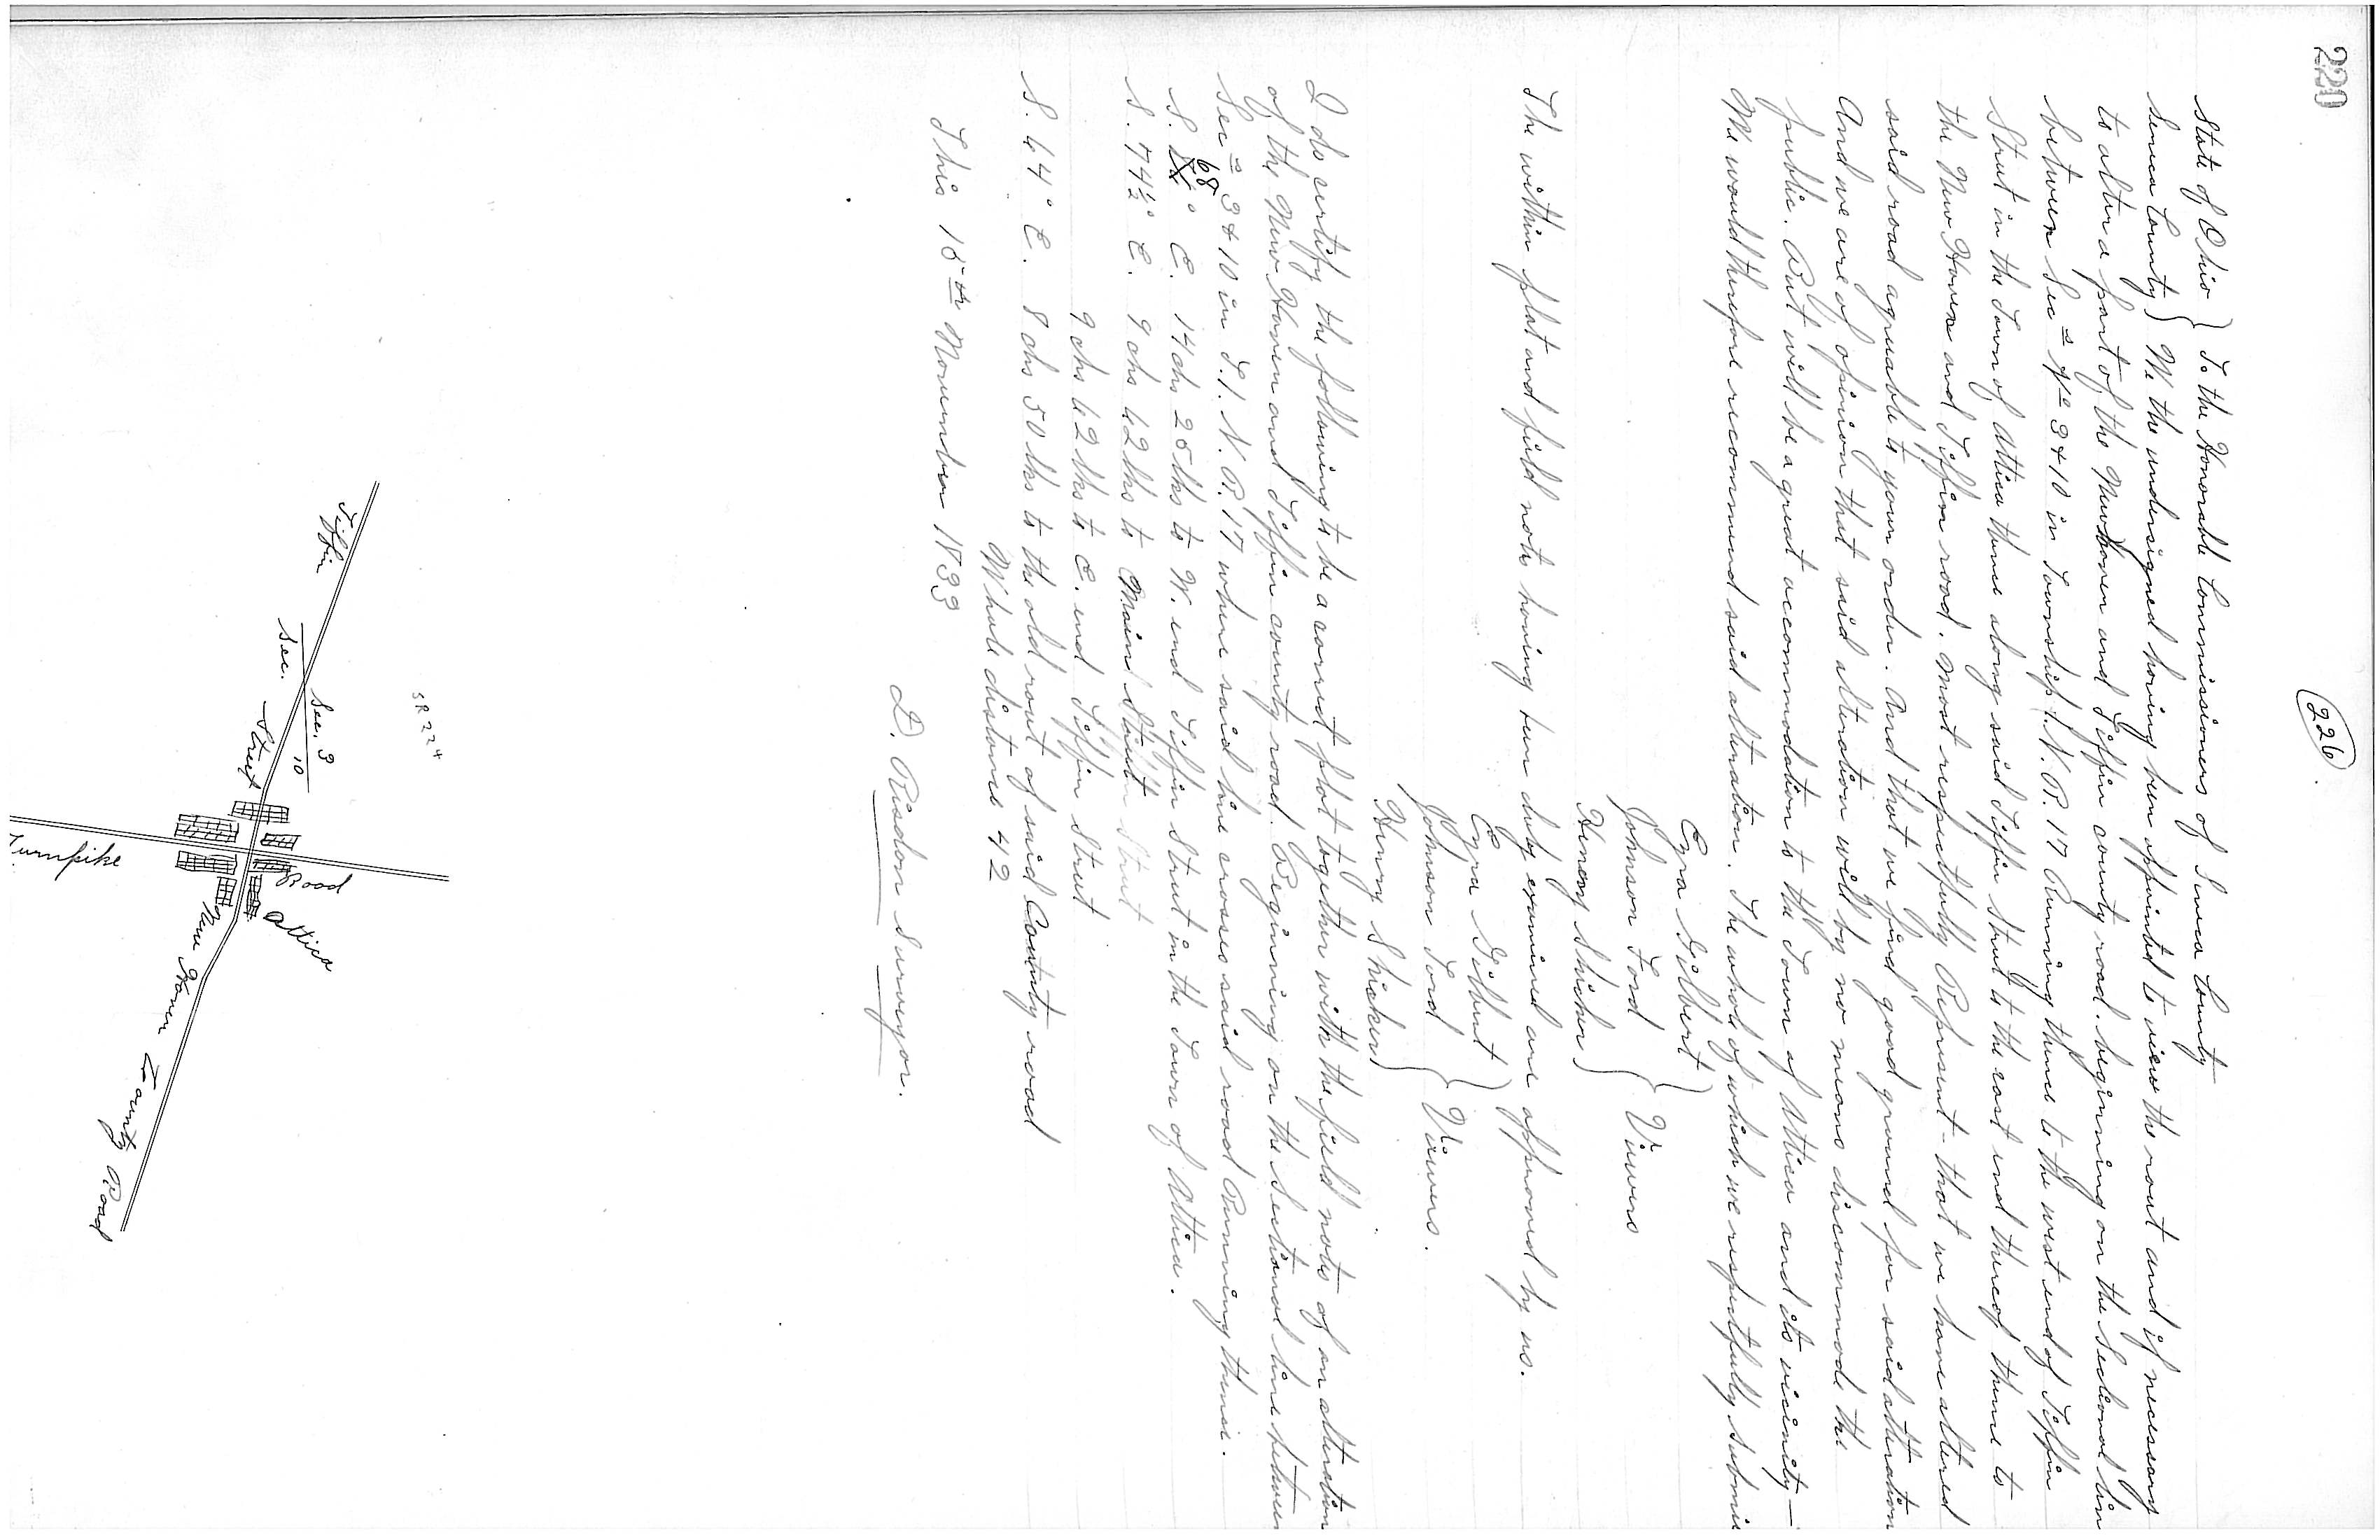 220
226.
State of Ohio } To the Honorable Commissioners of Seneca County
Seneca County } We the undersigned having been appointed to view the rout and if necessary
to alter a part of the New Haven and Tiffin county road. begining on the Sectional lin
between Secⁿ Nº 3 & 10 in Township 1. N. R. 17 Running thence to the west end of Tiffin
Street in the Town of Attica thence along said Tiffin Street to the east end thereof thence to
the New Haven and Tiffin road. Most respectfully Represent - that we have altered
said road agreeable to your order. And that we find good ground for said alteration
And we are of opinion that said alteration will by no means discommode the
public. But will be a great accommodation to the Town of Attica and its vicinity —
We would therefore recommend said alteration. The whole of which we respectfully submi
Ezra Gilbert
Johnson Ford } Viewers
Henry Shicker
The within plat and field note having been duly examined are approved by us.
Ezra Gilbert
Johnson Ford } Viewers.
Henry Shicker
I do certify the following to be a correct plat together with the field notes of an alteration
of the New Haven and Tiffin county road. Beginning on the Sectional line between
Secⁿ 3 & 10 in T. 1. N. R. 17 where said line crosses said road Running thence.
S. 68° E. 14 chs 25 lks to W. end Tiffin Street in the Town of Attica.
S. 74½° E. 9 chs 42 lks to Main Street
9 chs 42 lks to E. end Tiffin Street
S. 44° E. 8 chs 50 lks to the old rout of said County road
Whole distance 42
This 15th November 1833
D. Risdon Surveyor.
SR 224
Tiffin
Sec. 3
Sec. 10
Street
Road
Attica
Turnpike
New Haven County Road